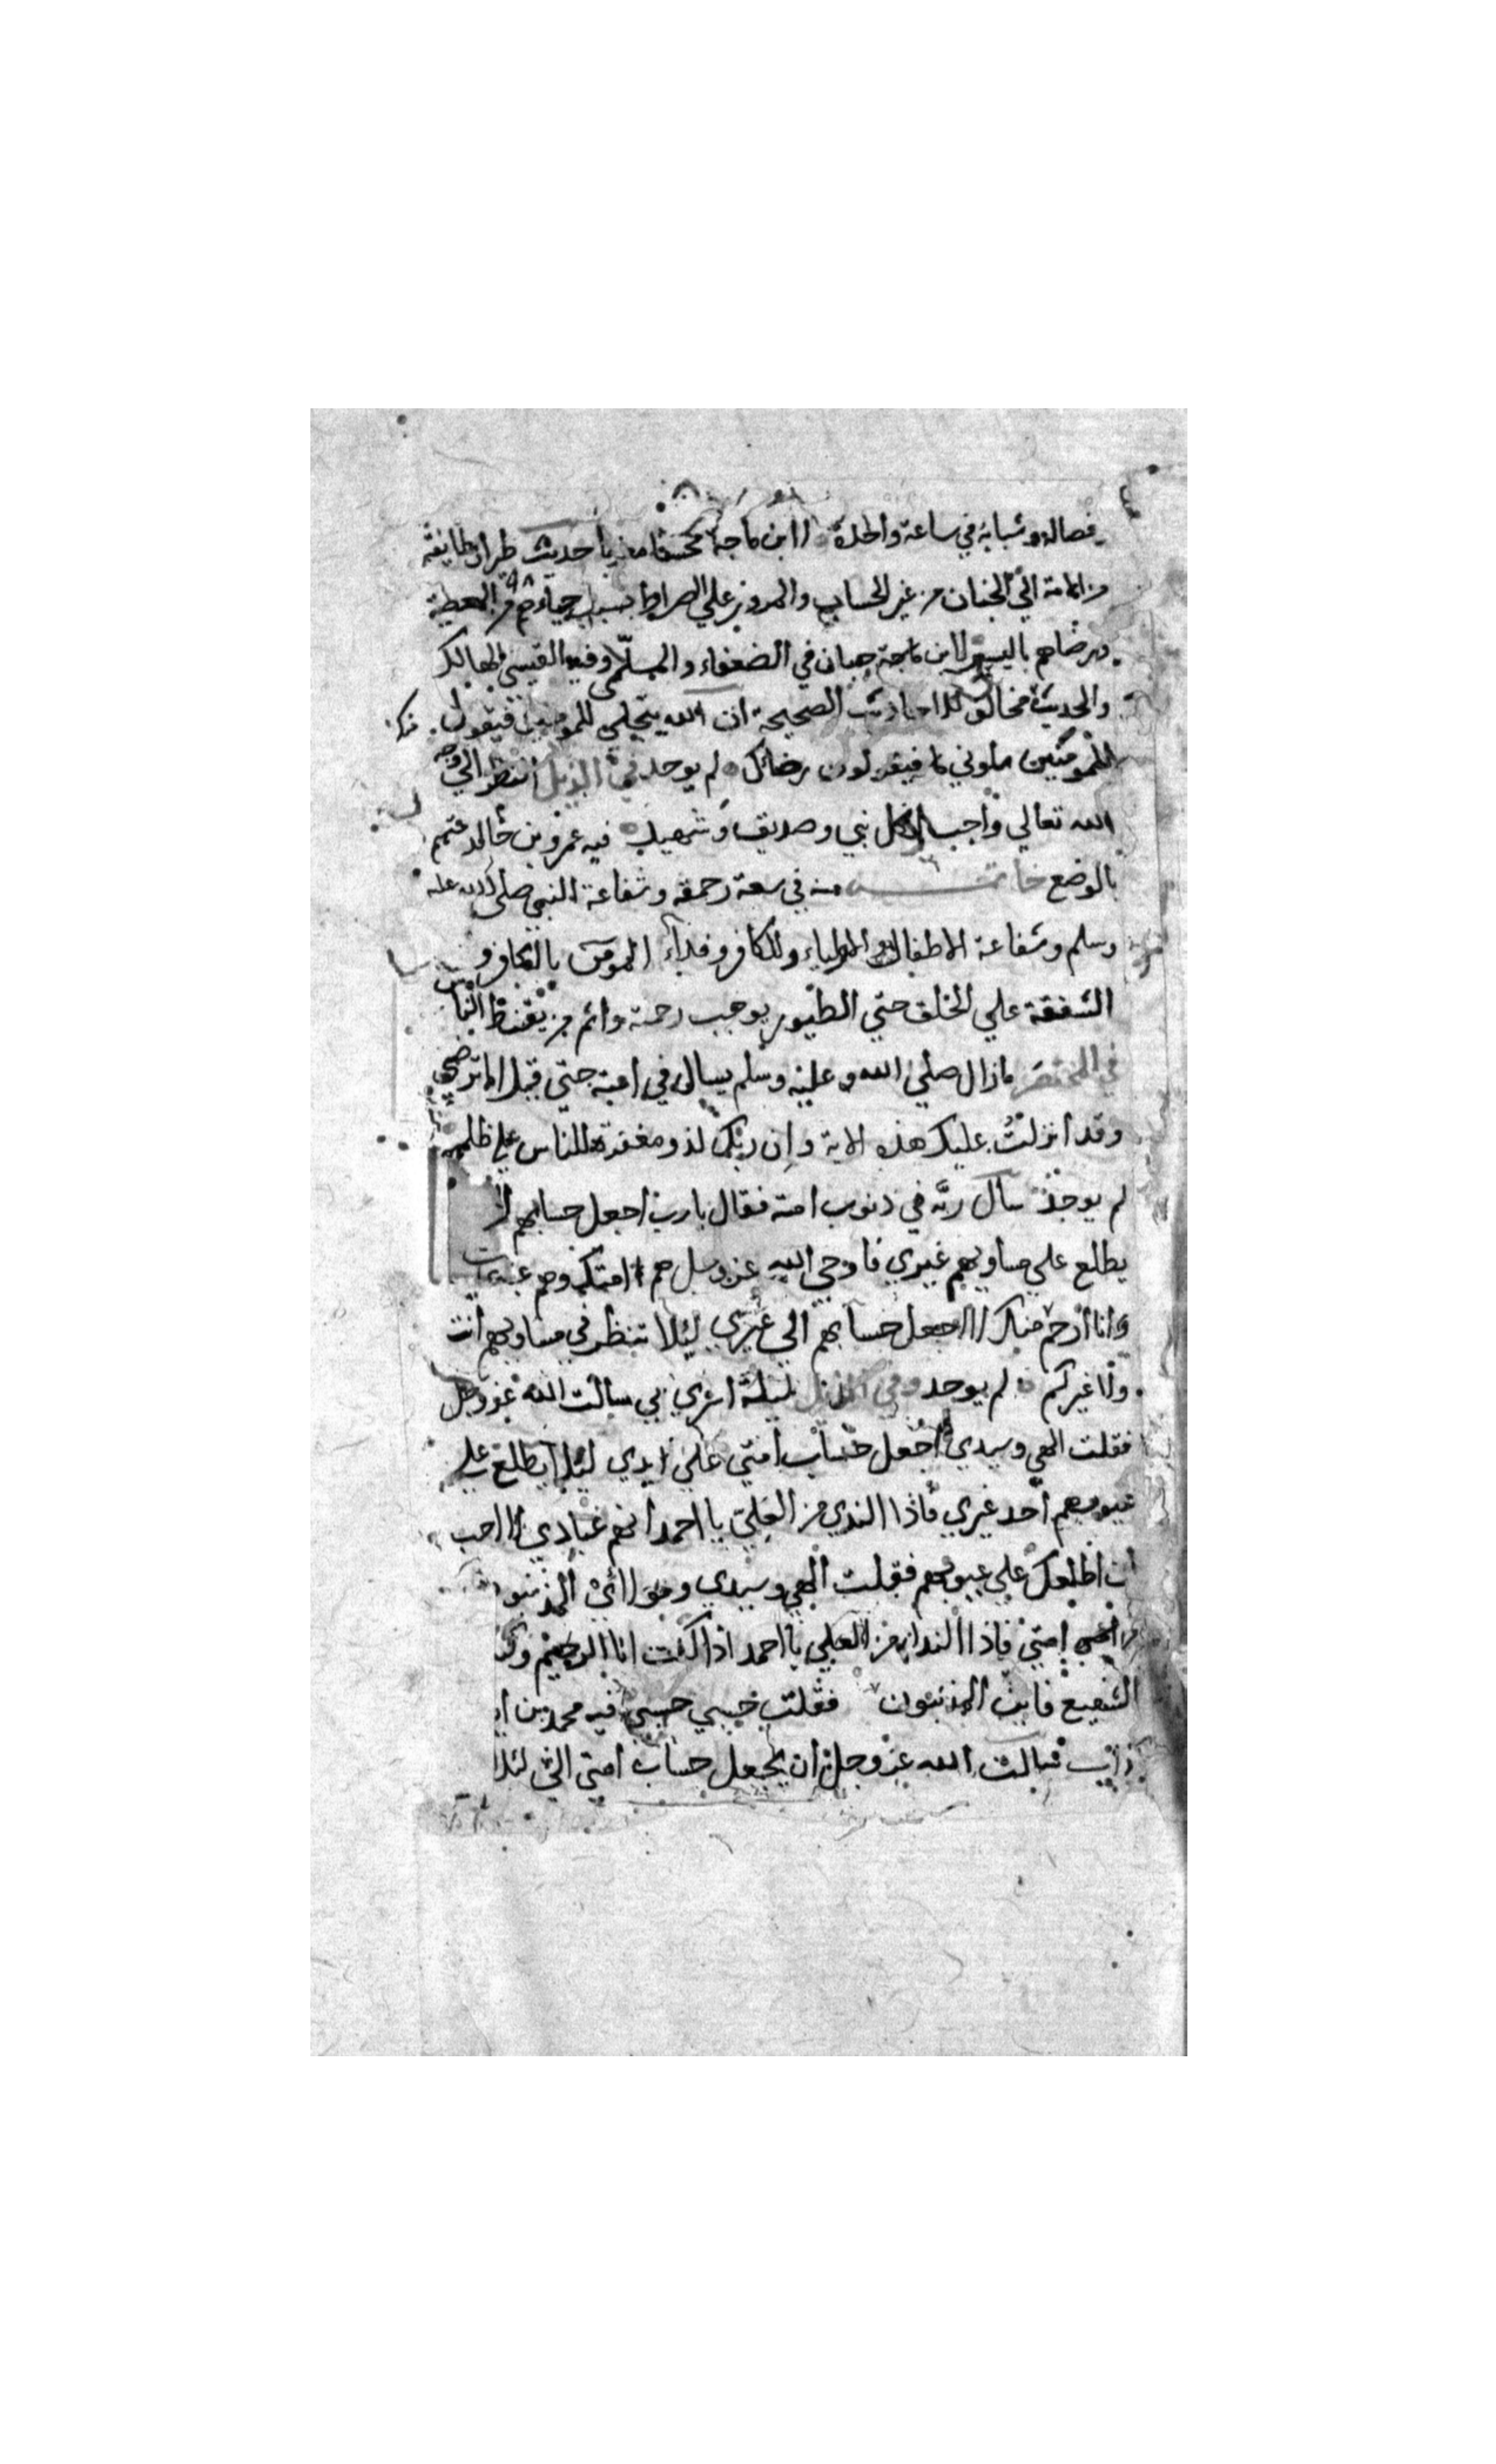 فصاله وشبابه في ساعة واحدة لابن ماجة محسنا حديث طيران طايفة
من الامة الي الجنان من غير الحساب والمرور علي الصراط بسبب حياءهم من المعصية
ورضاهم باليسير لابن ماجة حبان في الضعفاء والسلمى وفيه القيسي الهالك
والحديث مخالف للاحاديث الصحيحة ان الله يتجلي للمومنين فيقول
للمومنين سلوني فيقولون رضاك لم يوجد في الذيل النظر الي وجه
الله تعالي واجب لكل نبي وصديق وشهيد فيه عمرو بن خالد متهم
بالوضع خاتمة في سعة رحمته وشفاعة النبي صلى الله عليه
وسلم وشفاعة الاطفال والاولياء وللكافر وفداء المومن بالكافر و
الشفقة علي الخلق حتي الطيور يوجب رحمة واثم من يقنط الناس
في المختصر مازال صلي الله وعليه وسلم يسال في امته حتي قيل اما ترضي
وقد انزلت عليك هذه الاية وان ربك لذو مغفرة للناس علي ظلمهم
لم يوجد سال ربه في ذنوب امته فقال يارب اجعل حسابهم لا
يطلع علي مساويهم غيري فاوحي الله عز وجل هم امتك وهم عبادي
وانا ارحم منك لا اجعل حسابهم الي غيري ليلا تنظر في مساويهم انت
ولا غيركم لم يوجد وفي الذيل ليلة اسري بي سالت الله عز وجل
فقلت الهي وسيدي اجعل حساب امتي علي يدي لئلا يطلع علي
عيوبهم احد غيري فاذا الندي من العلي يا احمد انهم عبادي لا احب
ان اطلعك علي عيوبهم فقلت الهي وسيدي ومولائي المذنبون
من امتي فاذا النداء من العلي يا احمد اذا كنت انا الرحيم وكنت
الشفيع فاين المذنبون فقلت حسبي حسبي فيه محمد بن
سالت الله عز وجل ان يجعل حساب امتي الي لئلا